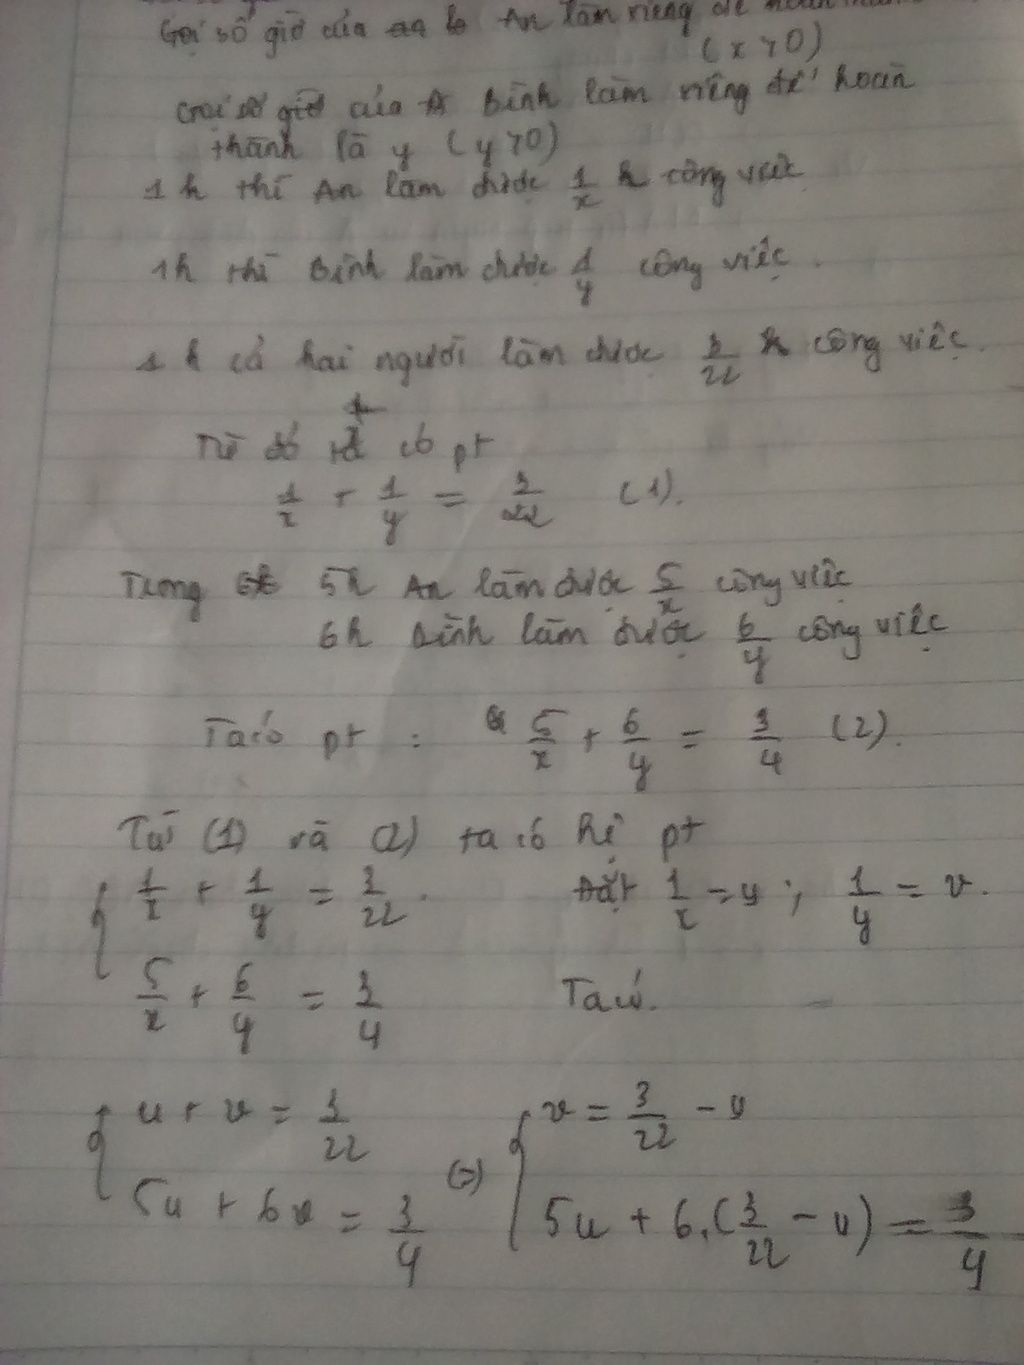 Gọi số giờ của An làm riêng để hoàn
(x > 0)
Gọi số giờ của Bình làm riêng để hoàn
thành là y (y > 0)
1h thì An làm được 1/x công việc
1h thì Bình làm được 1/y công việc.
1h cả hai người làm được 3/22 công việc.
Từ đó ta có pt
1/x + 1/y = 3/22 (1).
Trong 5h An làm được 5/x công việc
6h Bình làm được 6/y công việc
Ta có pt : 5/x + 6/y = 3/4 (2).
Từ (1) và (2) ta có hệ pt
1/x + 1/y = 3/22. Đặt 1/x = u ; 1/y = v.
5/x + 6/y = 3/4 Ta có.
u + v = 3/22 (=) v = 3/22 - u
5u + 6v = 3/4 5u + 6.(3/22 - u) = 3/4